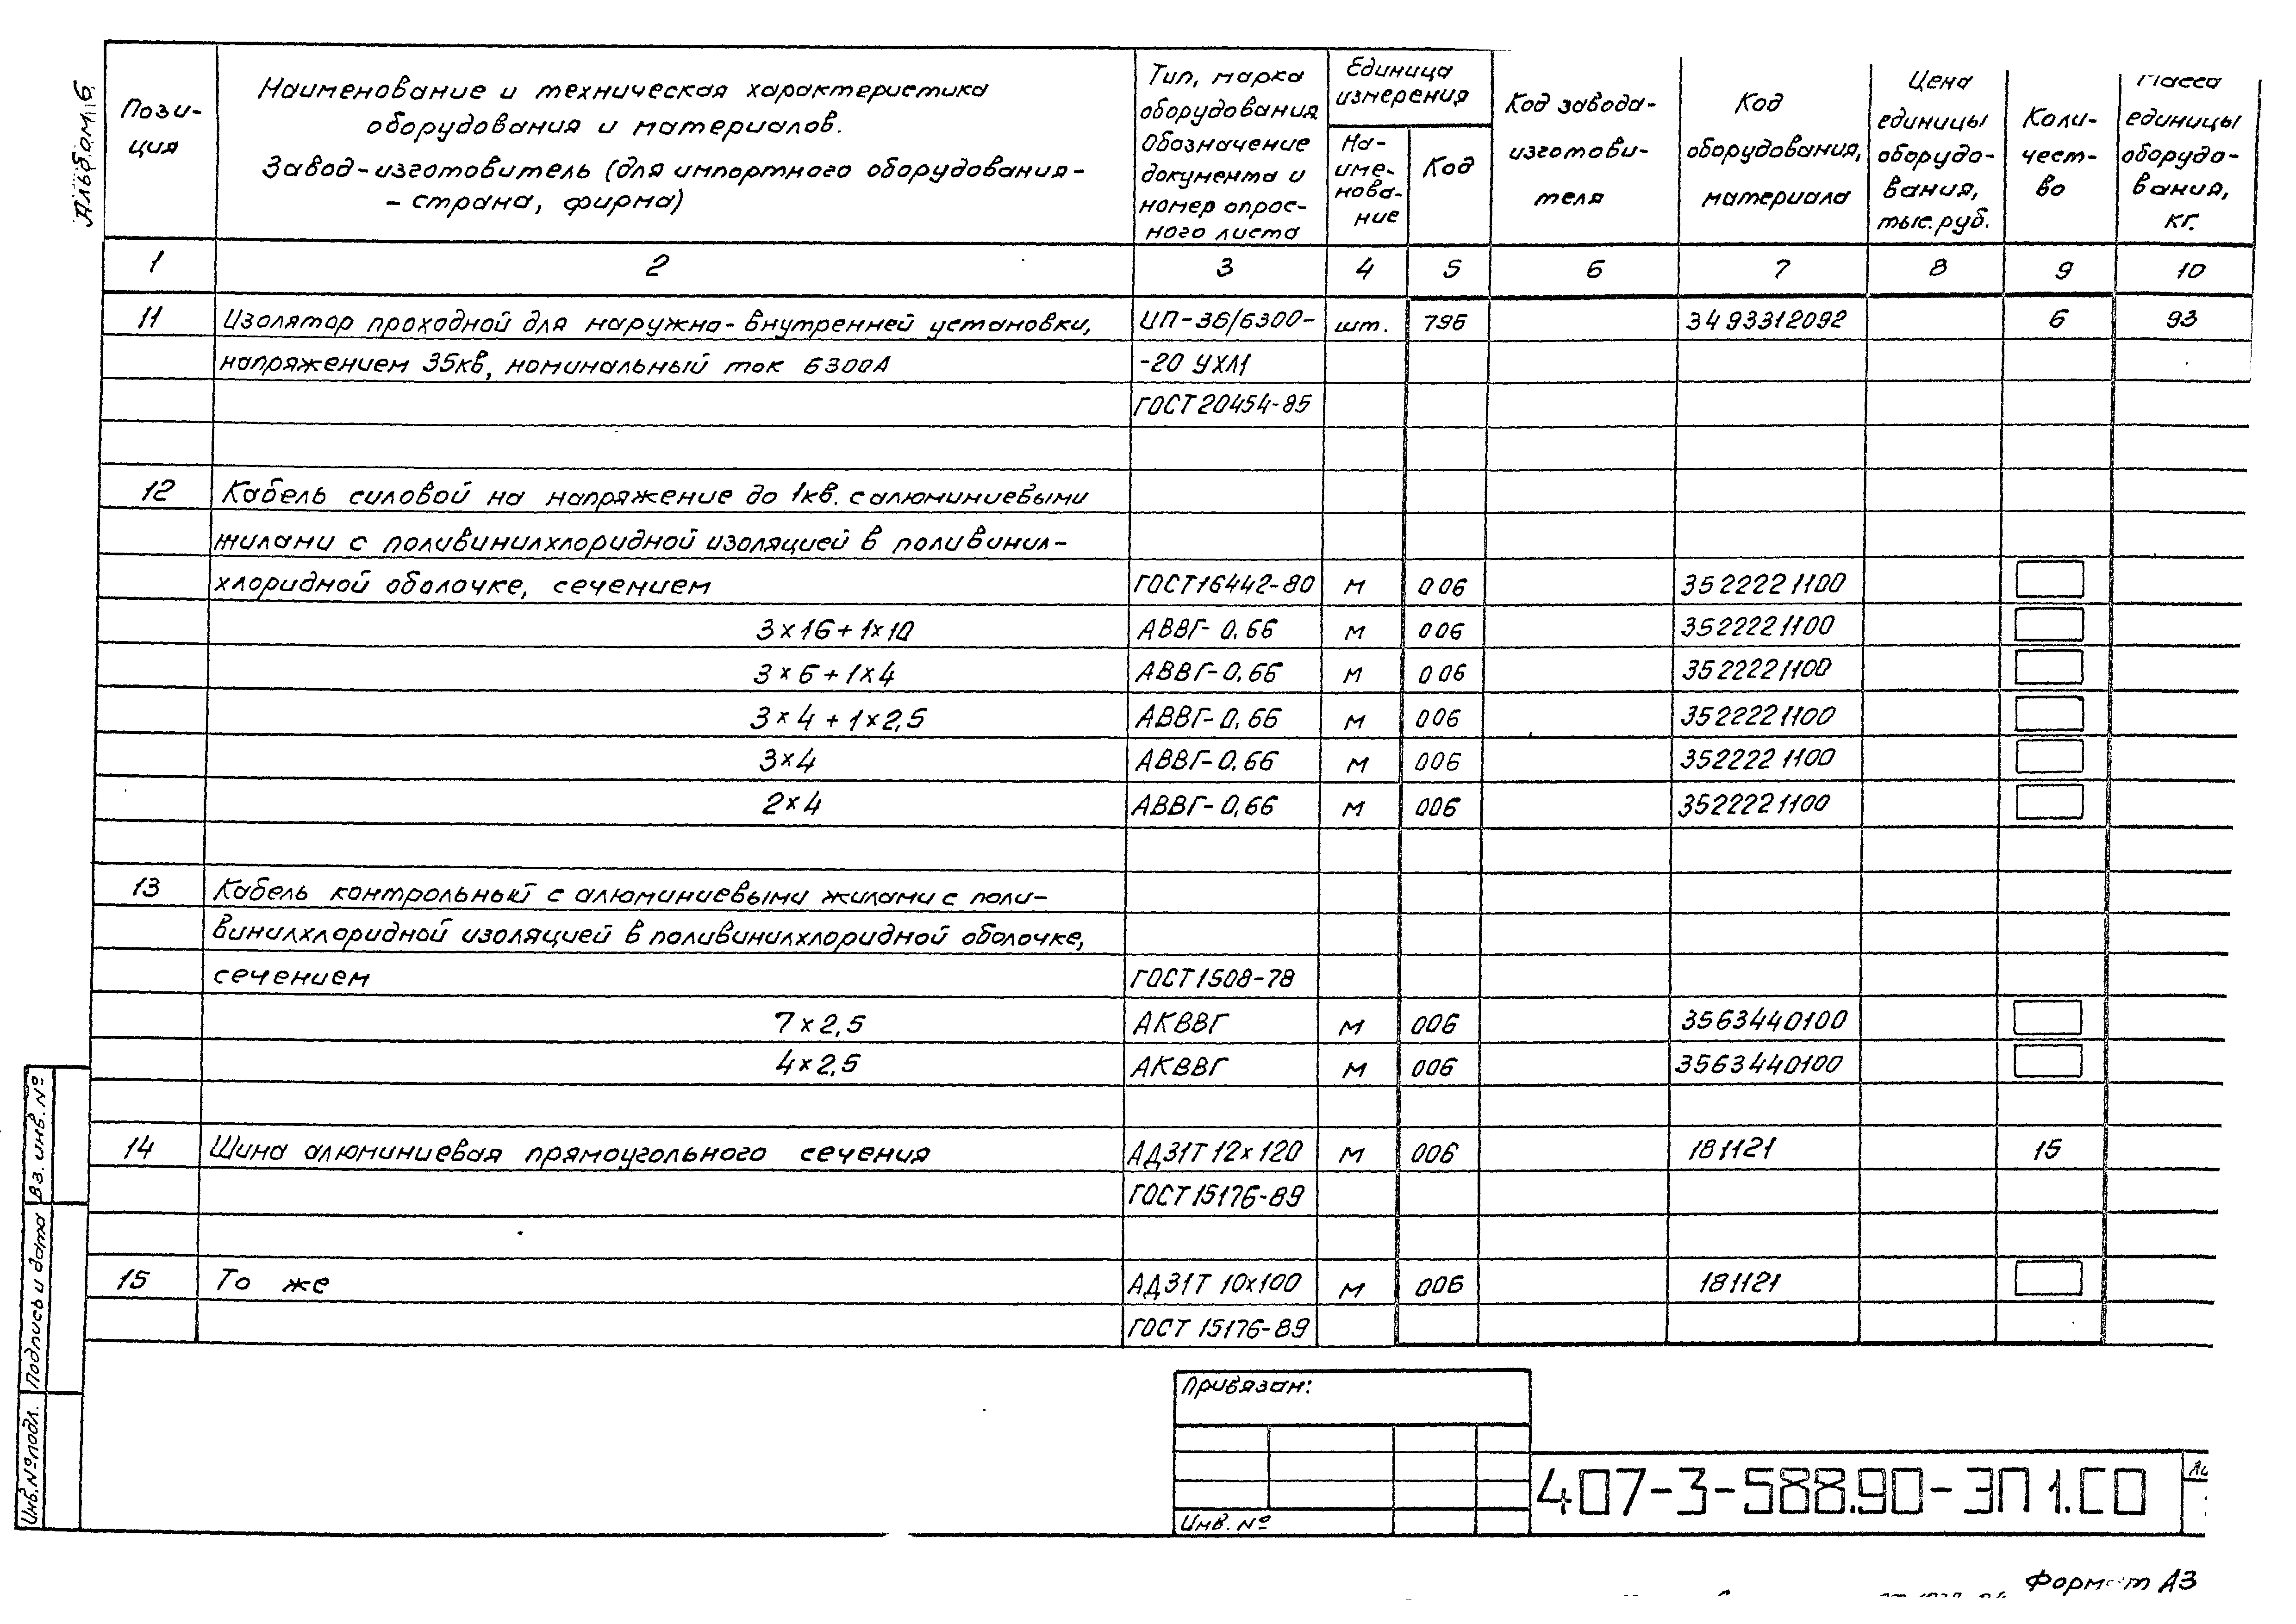 Альбом 6
Пози-
ция
Наименование и техническая характеристика
оборудования и материалов.
Завод-изготовитель (для импортного оборудования-
- страна, фирма)
Тип, марка
оборудования
Обозначение
документа и
номер опрос-
ного листа
Единица
измерения
На-
име-
нова-
ние
Код
Код завода-
изготови-
теля
Код
оборудования,
материала
Цена
единицы
оборудо-
вания,
тыс.руб.
Коли-
чест-
во
Масса
единицы
оборудо-
вания,
кг.
1 2 3 4 5 6 7 8 9 10
11 Изолятор проходной для наружно-внутренней установки, ИП-36/6300- шт. 796 3493312092 6 93
напряжением 35кв, номинальный ток 6300А -20 УХЛ1
ГОСТ 20454-85
12 Кабель силовой на напряжение до 1кв. с алюминиевыми
жилами с поливинилхлоридной изоляцией в поливинил-
хлоридной оболочке, сечением ГОСТ16442-80 м 006 3522221100
3×16+1×10 АВВГ-0,66 м 006 3522221100
3×6+1×4 АВВГ-0,66 м 006 3522221100
3×4+1×2,5 АВВГ-0,66 м 006 3522221100
3×4 АВВГ-0,66 м 006 3522221100
2×4 АВВГ-0,66 м 006 3522221100
13 Кабель контрольный с алюминиевыми жилами с поли-
винилхлоридной изоляцией в поливинилхлоридной оболочке,
сечением ГОСТ1508-78
7×2,5 АКВВГ м 006 3563440100
4×2,5 АКВВГ м 006 3563440100
14 Шина алюминиевая прямоугольного сечения АД31Т 12×120 м 006 181121 15
ГОСТ15176-89
15 То же АД31Т 10×100 м 006 181121
ГОСТ 15176-89
Вз. инв. №
Подпись и дата
Инв.№подл.
Привязан:
Инв. №
407-3-588.90-ЭП1.СО
Формат А3